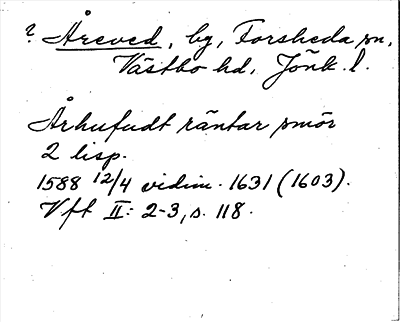 ? Åreved, by, Forsheda sn,
Västbo hd, Jönk. l.
Århufudt räntar smör
2 lisp.
1588 12/4 vidim. 1631 (1603).
Vft II: 2-3, s. 118.